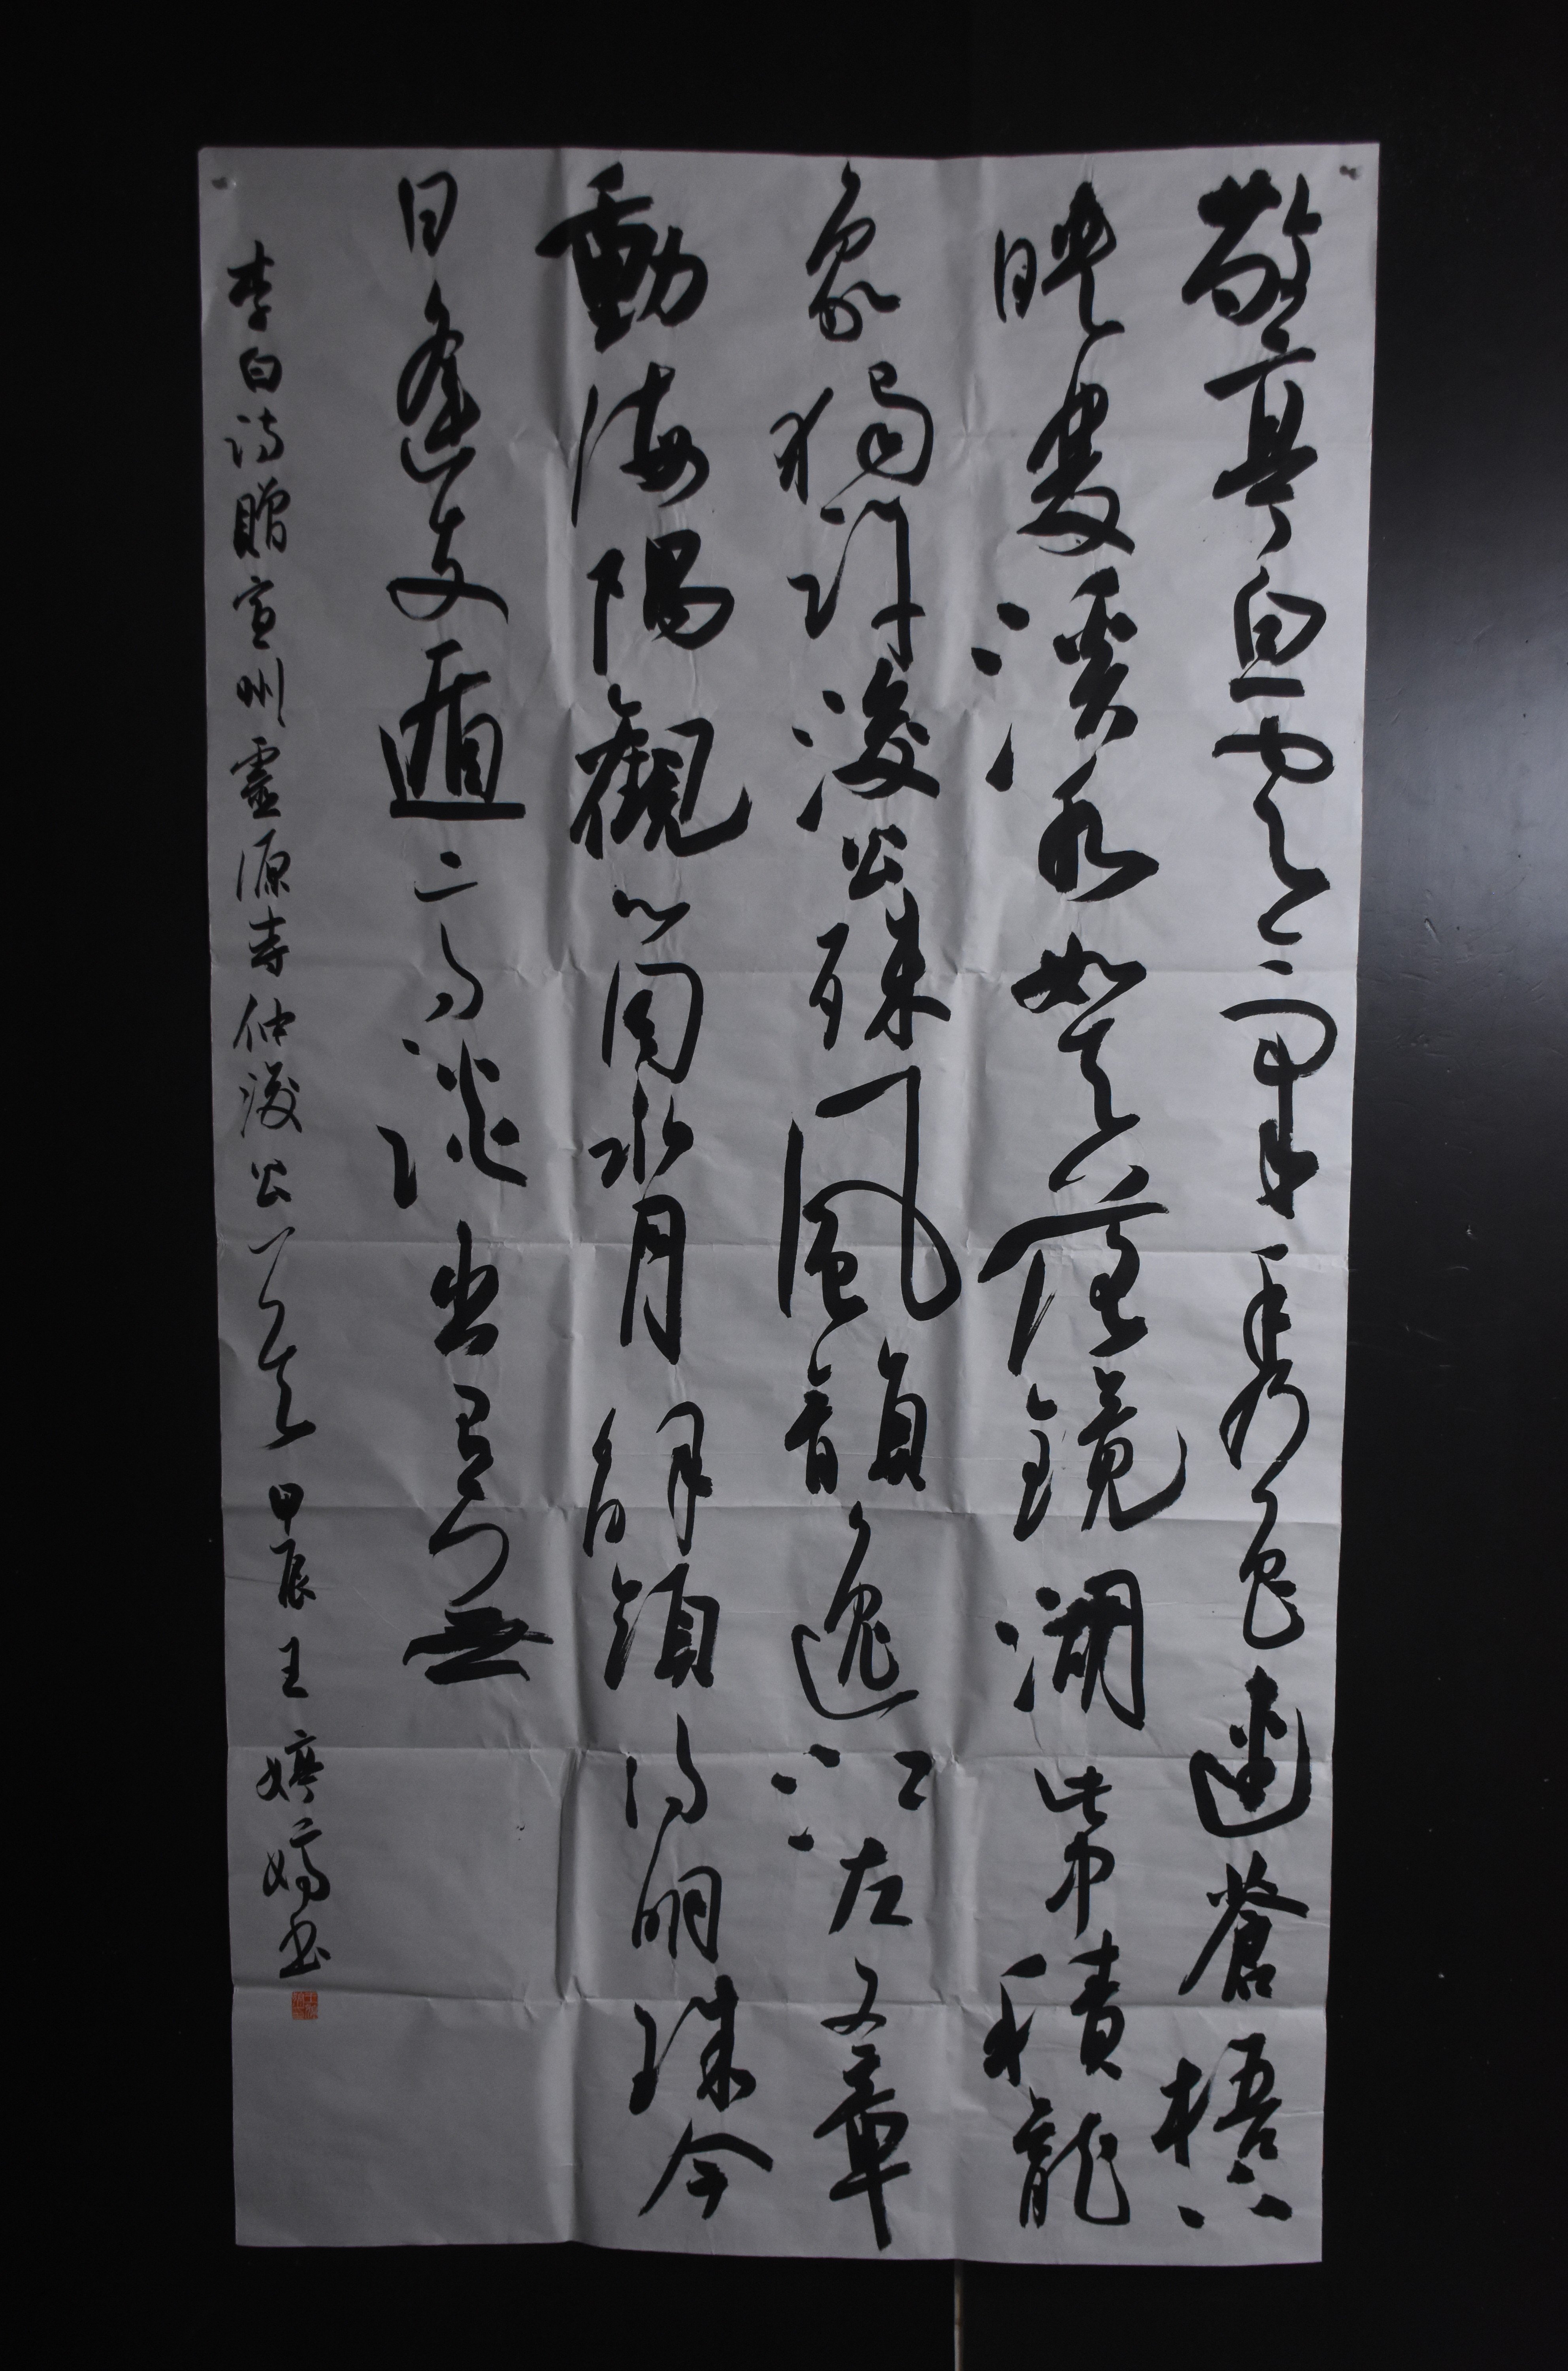 敬亭白雲氣秀色連蒼梧下
映雙溪水如天落鏡湖此中積龍
象獨許浚公殊風韻逸江左文章
動海隅觀心同水月解領得明珠今
日逢支遁高談出有無
李白詩贈宣州靈源寺仲浚公一首甲辰王婷嬌書